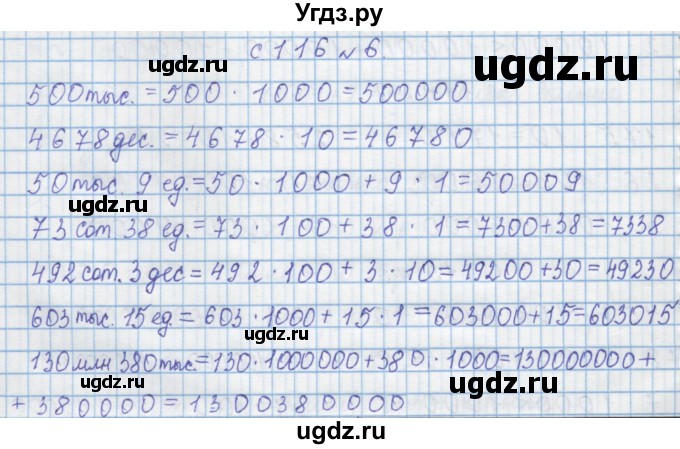 Угдз.ру
с 116 № 6.
500 тыс. = 500 · 1000 = 500000
ugdz.ru ugdz.ru
4678 дес. = 4678 · 10 = 46780
50 тыс. 9 ед. = 50 · 1000 + 9 · 1 = 50009
ugdz.ru
73 сот. 38 ед. = 73 · 100 + 38 · 1 = 7300 + 38 = 7338
ugdz.ru
492 сот. 3 дес = 492 · 100 + 3 · 10 = 49200 + 30 = 49230
603 тыс. 15 ед. = 603 · 1000 + 15 · 1 = 603000 + 15 = 603015
ugdz.ru
130 млн 380 тыс. = 130 · 1000000 + 380 · 1000 = 130000000 +
ugdz.ru
+ 380000 = 1300380000
ugdz.ru